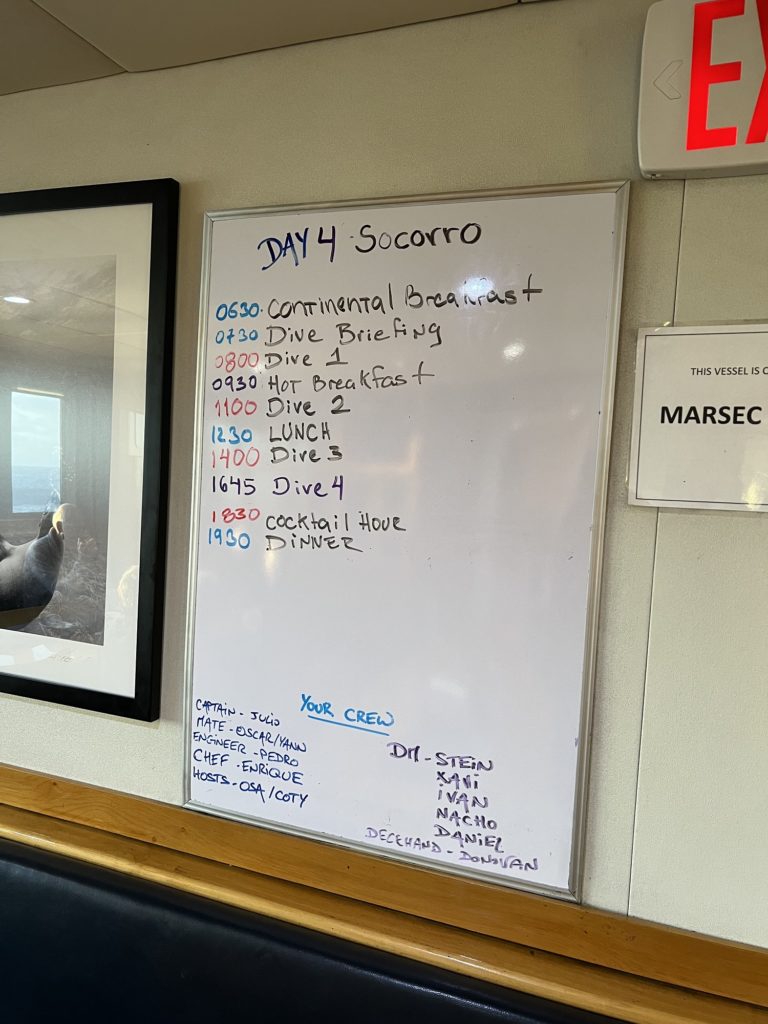 EX
DAY 4 - Socorro
0630. Continental Breakfast
0730 Dive Briefing
0800 Dive 1
0930 Hot Breakfast
1100 Dive 2
1230 LUNCH
1400 Dive 3
1645 Dive 4
1830 Cocktail Hour
1930 DINNER
THIS VESSEL IS
MARSEC
YOUR CREW
CAPTAIN - JULIO
MATE - OSCAR/YANN
ENGINEER - PEDRO
CHEF - ENRIQUE
HOSTS - OSA/COTY
DM - STEIN
XAVI
IVAN
NACHO
DANIEL
DECKHAND - DONOVAN